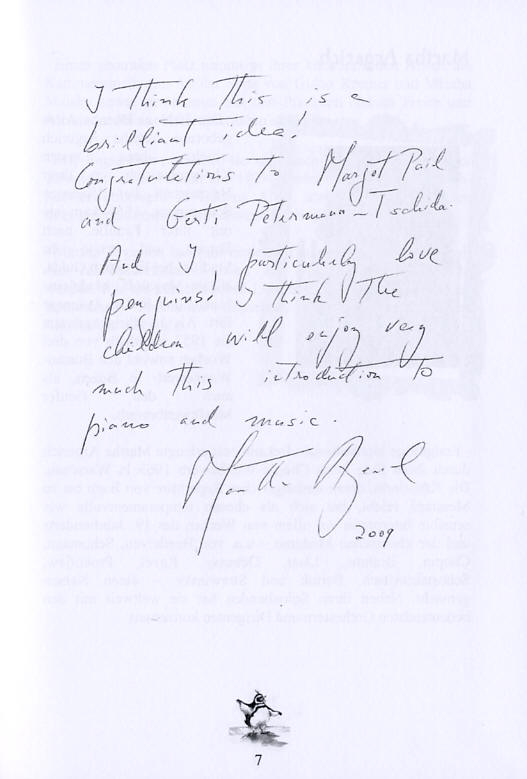 I think this is a
brilliant idea!
Congratulations to Margot Pail
and Gerti Petermann-Tschida.
And I particularly love
penguins. I think the
children will enjoy very
much this introduction to
piano and music.
Martha
2009
7